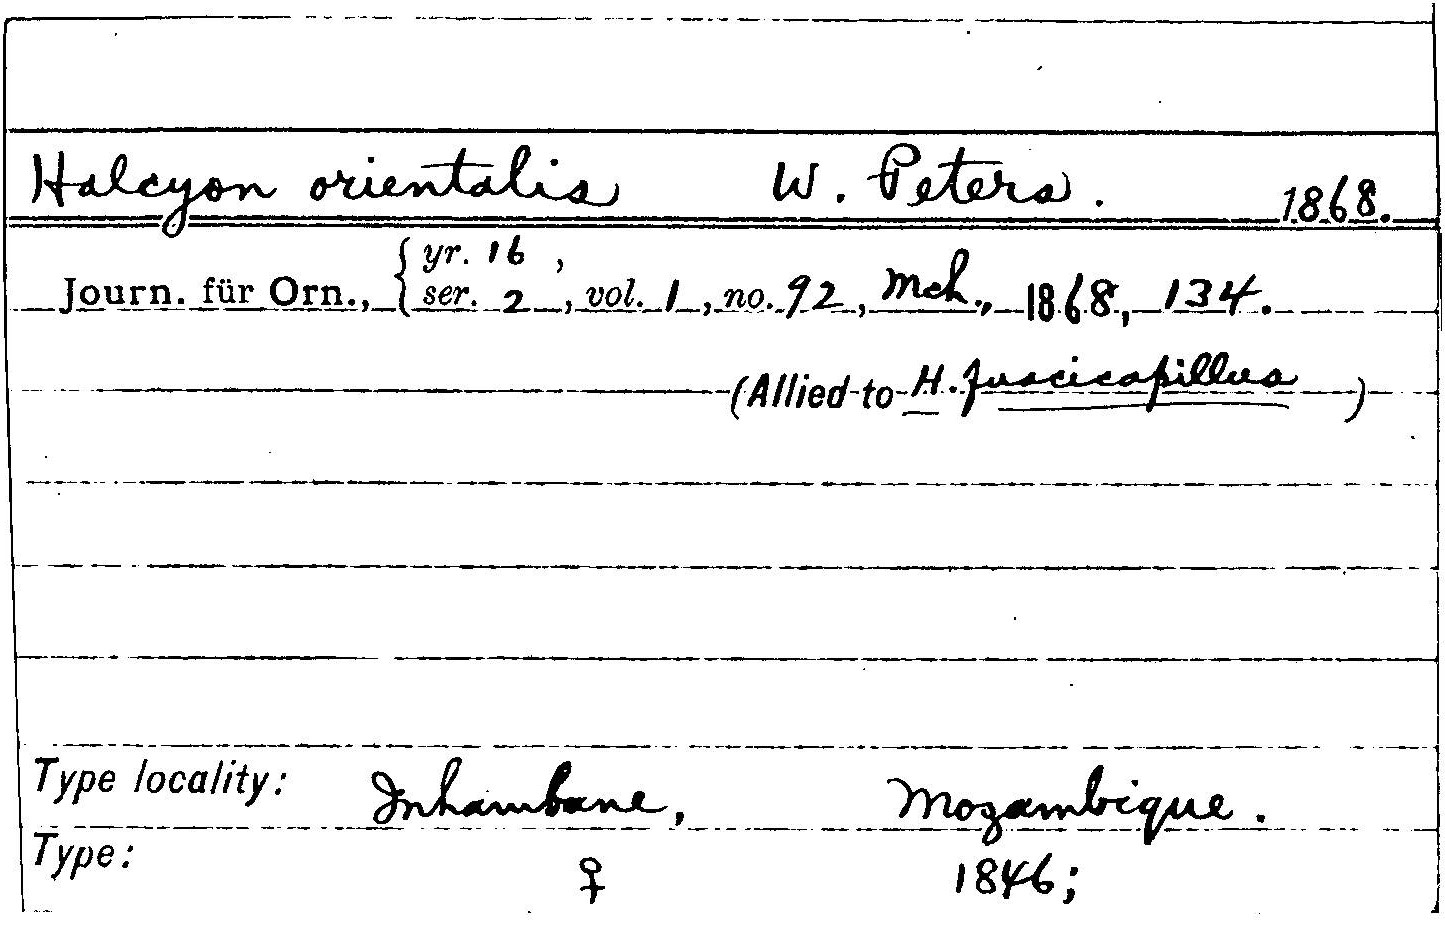 Halcyon orientalis W. Peters. 1868.
Journ. für Orn., { yr. 16 ,
ser. 2 , vol. 1 , no. 92 , Mch., 1868, 134.
(Allied to H. fuscicapillus )
Type locality: Inhambane, Mozambique.
Type: ♀ 1846;